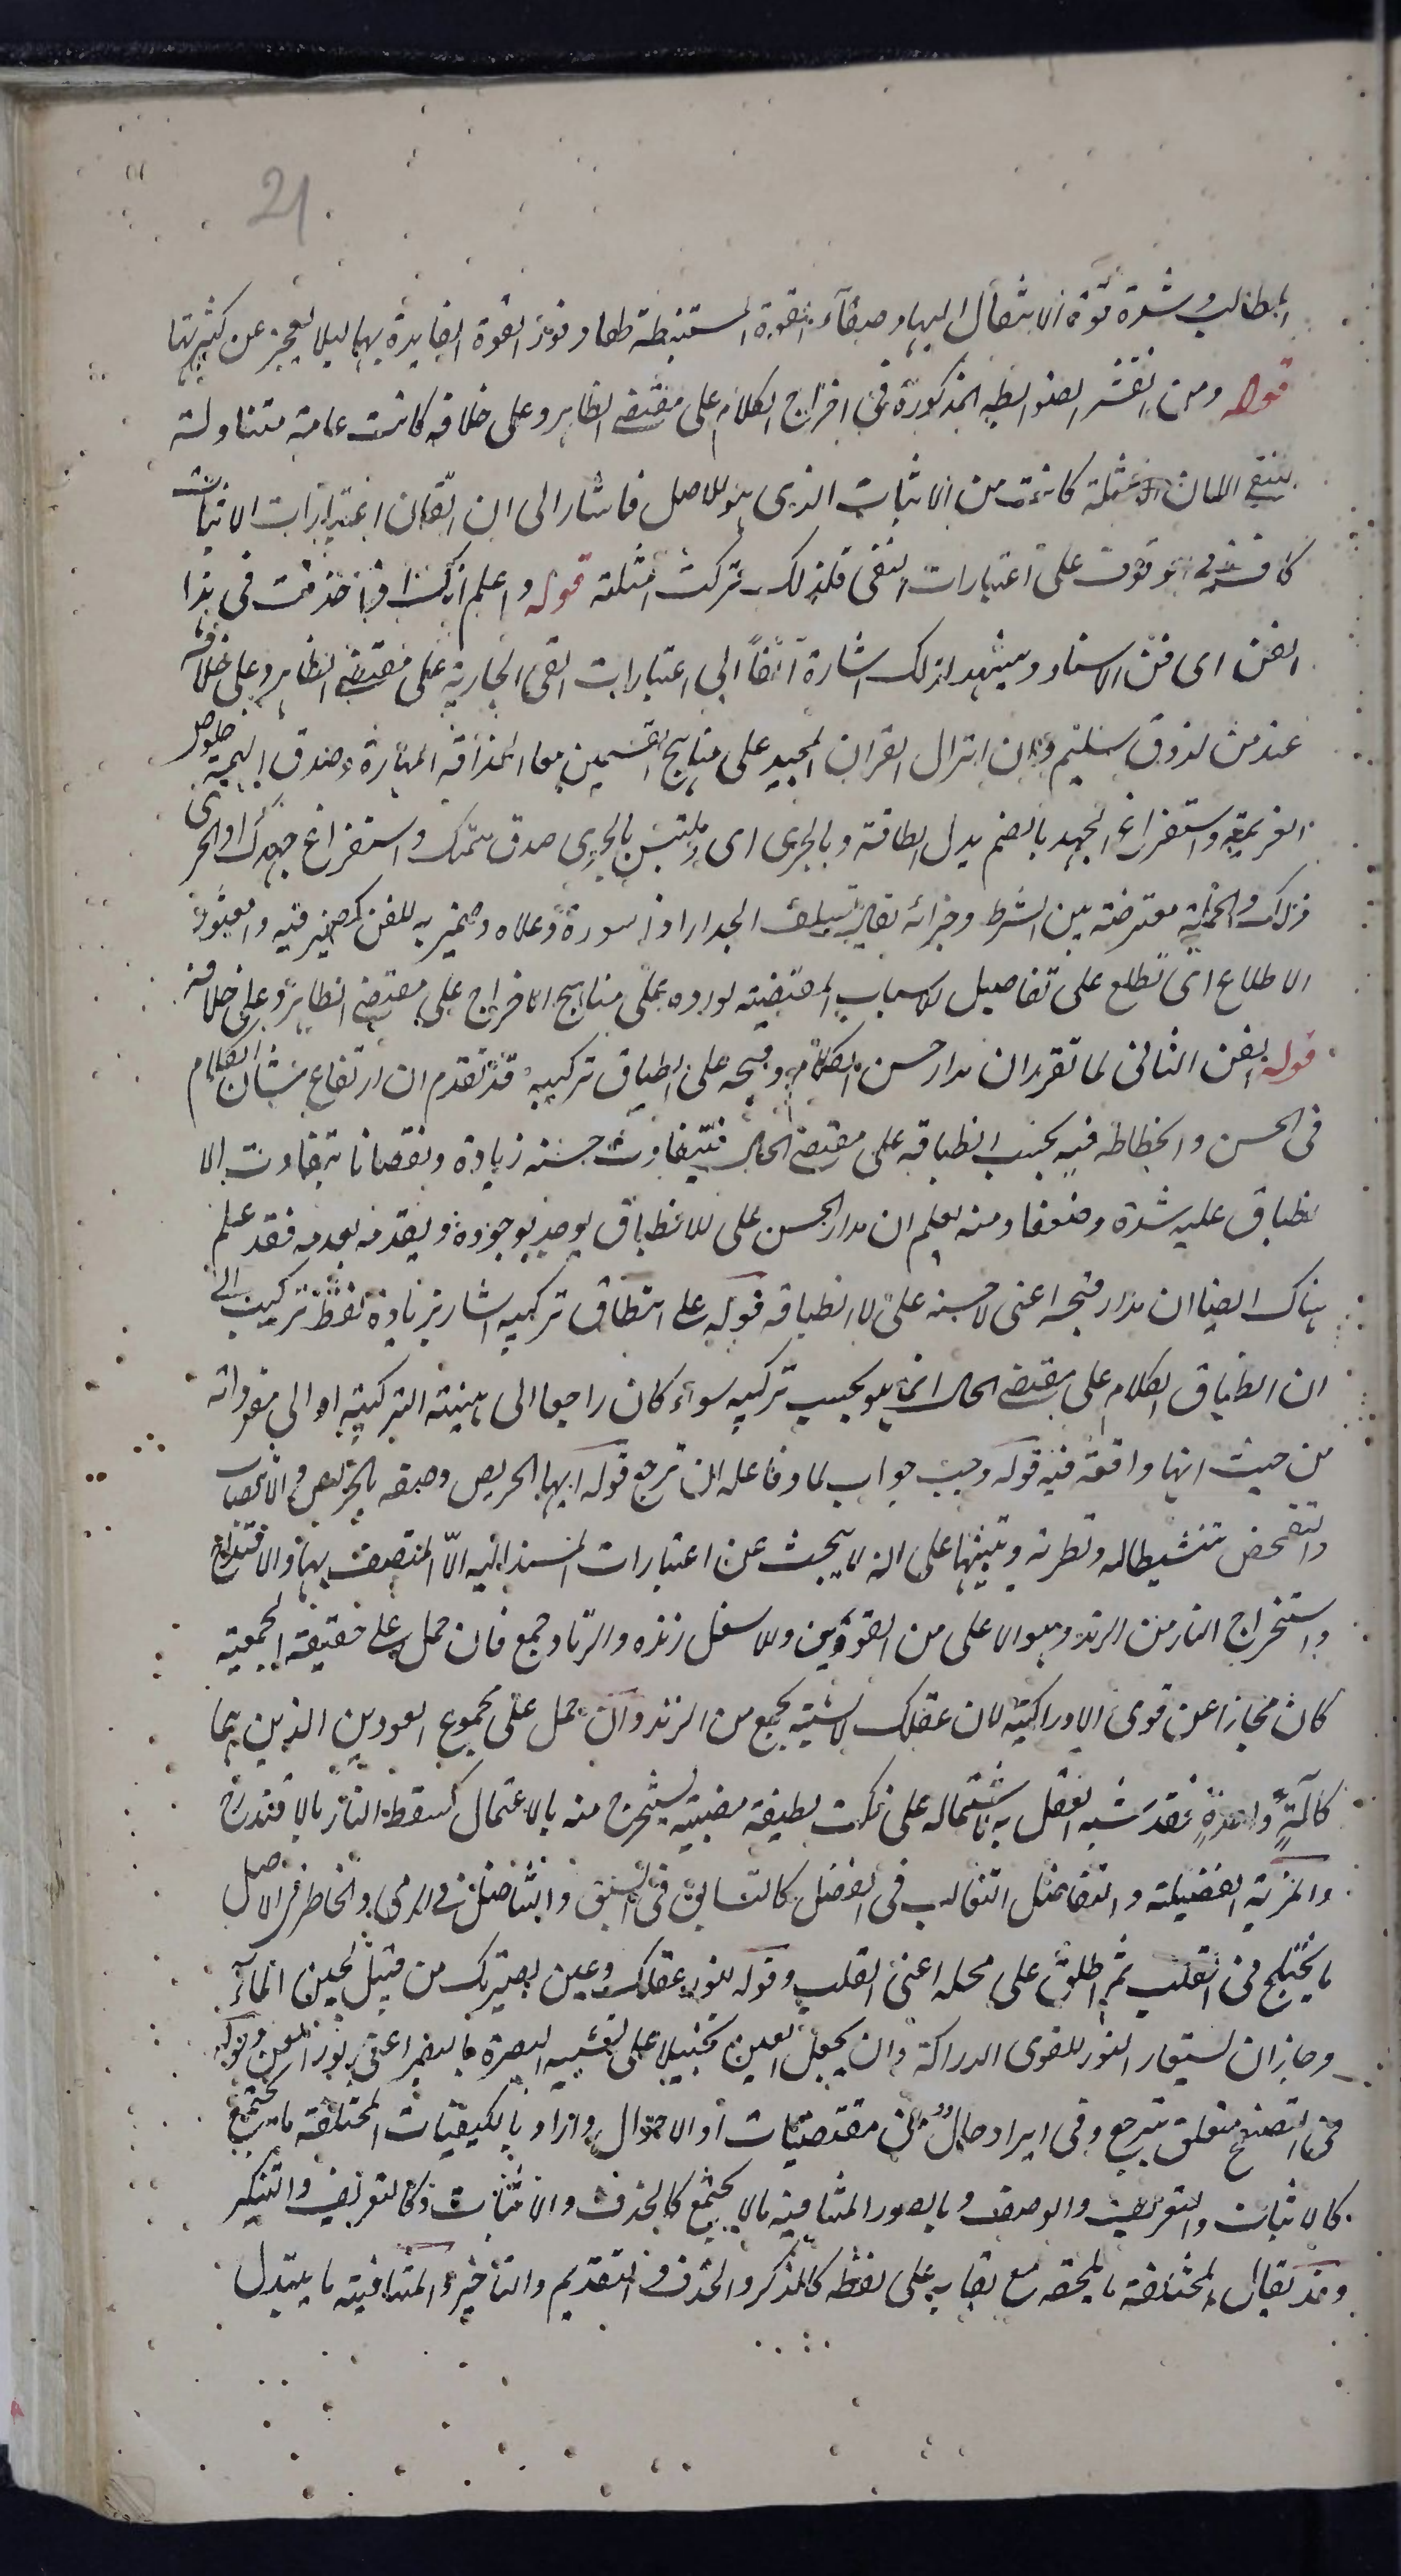 21
المطالب وشدة قوة الانتقال اليها وصفاء القوة المستنبطة لها ونور القوة الفائدة بها ليلا يعجز عن كثرتها
قوله ومن نفس الضوابط المذكورة في اخراج الكلام على مقتضى الظاهر وعلى خلافه كانت عامة متناولة
للنفي الا ان الامثلة كانت من الاثبات الذي هو للاصل فاشار الى ان اتقان اعتبارات الاثبات
كاف في الوقوف على اعتبارات النفي فلذلك تركت امثلته قوله واعلم انك اذا حذقت في هذا
الفن اى فن الاسناد ويشهد لذلك اشارة آنفاً الى اعتبارات النفي الجارية على مقتضى الظاهر وعلى خلافه
عند من لذوق سليم وان انزال القران المجيد على مناهج القسمين معا الحذاقة المهارة وصدق الهمة خلوص
العزيمة واستفراغ الجهد بالضم بدل الطاقة وبالحرى اى وملتبس بالحرى صدق همتك واستفراغ جهدك او الحرى
ذلك والجملة معترضة بين الشرط وجزائه يقال تسلق الجدار اذا سوره وعلاه وضمير به للفن كضمير فيه والعثور
الاطلاع اى تطلع على تفاصيل الاسباب المقتضية لوروده على مناهج الاخراج على مقتضى الظاهر وعلى خلافه
قوله الفن الثاني لما تقرر ان مدار حسن الكلام وقبحه على انطباق تركيبه قد تقدم ان ارتفاع شان الكلام
في الحسن وانحطاطه فيه بحسب انطباقه على مقتضى الحال فيتفاوت حسنه زيادة ونقصانا بتفاوت الا
نطباق عليه شدة وضعفا ومنه يعلم ان مدار الحسن على الانطباق يوجد بوجوده ويعدم بعدمه فقد علم
هناك ايضا ان مدار قبحه اعنى لاحسنه على لا انطباقه قوله على انطباق تركيبه اشار بزيادة لفظ تركيب الى
ان انطباق الكلام على مقتضى الحال انما هو بحسب تركيبه سواء كان راجعا الى هيئته التركيبية او الى مفرداته
من حيث انها واقعة فيه قوله وجب جواب لما وفاعله ان ترجع قوله ايها الحريص وصفه بالحرص والانتصاب
والتفحص تنشيطا له وتطرئة وتنبيها على انه لا يبحث عن اعتبارات المسند اليه الا المتصف بها والاقتداح
واستخراج النار من الزند وهو الاعلى من العودين وللاسفل زنده والزناد جمع فان حمل على حقيقة الجمعية
كان مجازا عن قوى الادراكية لان عقلك لا شبه بجمع من الزند وان حمل على مجموع العودين الذين هما
كآلةٍ واحدةٍ فقد شبه العقل به لاشتماله على نكت لطيفة مخبية يستخرج منه بالاعتمال كسقط النار بالاقتداح
والمزية الفضيلة والتفاضل التغالب في الفضل كالتسابق في السبق والتناضل في الرمى والخاطر في الاصل
ما يختلج في القلب ثم اطلق على محله اعنى القلب وقوله لنور عقلك وعين بصيرتك من قبيل لجين الماء
وجاز ان يستعار النور للقوى الدراكة وان يجعل العين تخييلا على تشبيه البصيرة بالبصر اعنى نور العين قوله
في التصفح متعلق بترجع وفي ايراد حال من مقتضيات او الاحوال واراد بالكيفيات المختلفة ما يجتمع
كالاثبات والتعريف والوصف وبالصور المتنافية مالا يجتمع كالحذف والاثبات وكالتعريف والتنكير
وقد يقال المختلفة ما يلحقه مع بقايه على لفظه كالذكر والحذف والتقديم والتاخير والمتنافية ما يتبدل